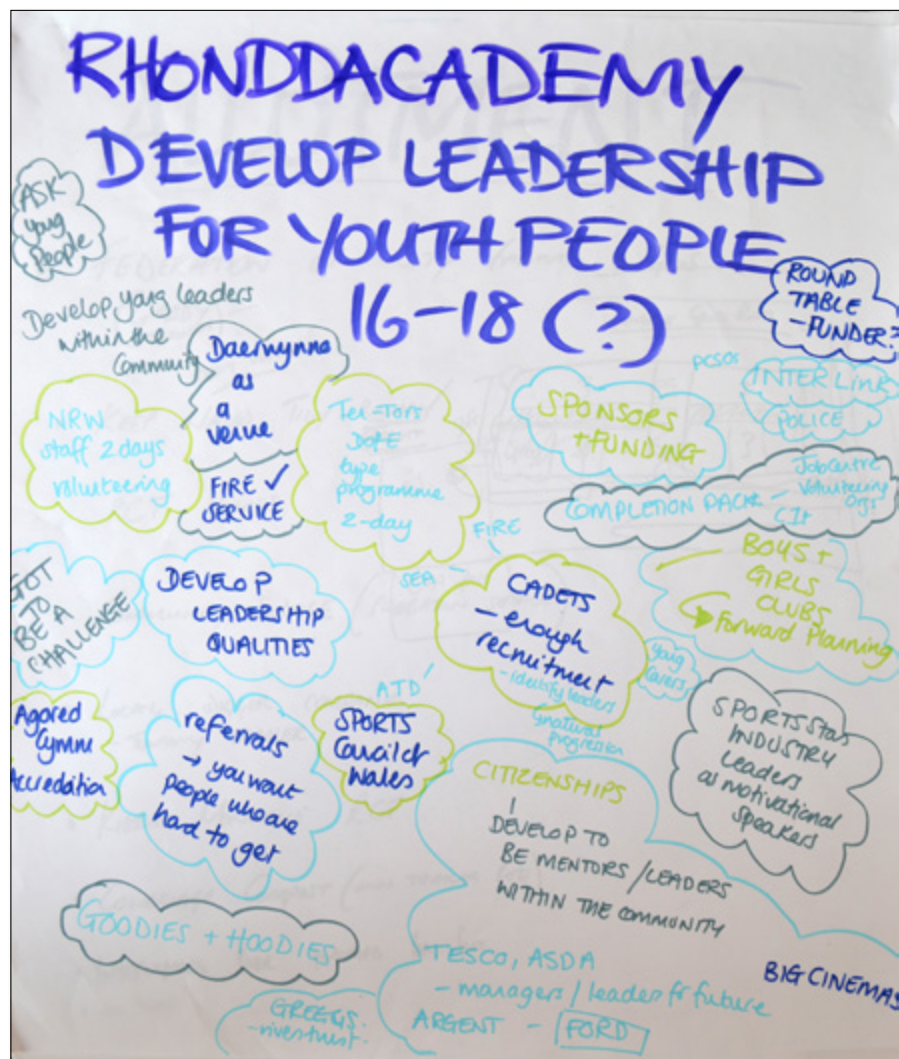 RHONDDACADEMY
DEVELOP LEADERSHIP
FOR YOUTH PEOPLE
16-18 (?)
ASK
young
People
Develop young leaders
within the
Community
Daerwynno
as
a
venue
FIRE ✓
SERVICE
NRW
staff 2 days
volunteering
Ten-Tors
DofE
type
programme
2-day
ROUND
TABLE
-FUNDER?
PCSOs
INTERLINK
POLICE
SPONSORS
+FUNDING
COMPLETION PACK -
JobCentre
Volunteering
Orgs
GOT
TO
BE A
CHALLENGE
DEVELOP
LEADERSHIP
QUALITIES
FIRE
SEA
CADETS
- enough
recruitment
- identify leaders
natural
progression
BOYS +
GIRLS
CLUBS
Forward Planning
young
carers
Agored
Cymru
Accreditation
referrals
→ you want
people who are
hard to get
ATD
SPORTS
Council of
Wales
SPORTS Stars
INDUSTRY
Leaders
as motivational
speakers
CITIZENSHIPS
DEVELOP TO
BE MENTORS / LEADERS
WITHIN THE COMMUNITY
GOODIES + HOODIES
TESCO, ASDA
- managers / leader for future
ARGENT - FORD
BIG CINEMAS
GREGGS.
-rivertrust.